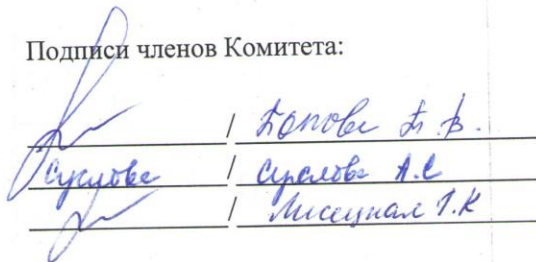 Подписи членов Комитета:
/
Суслова / Суслова А.С
/ Лисецкая Т.К